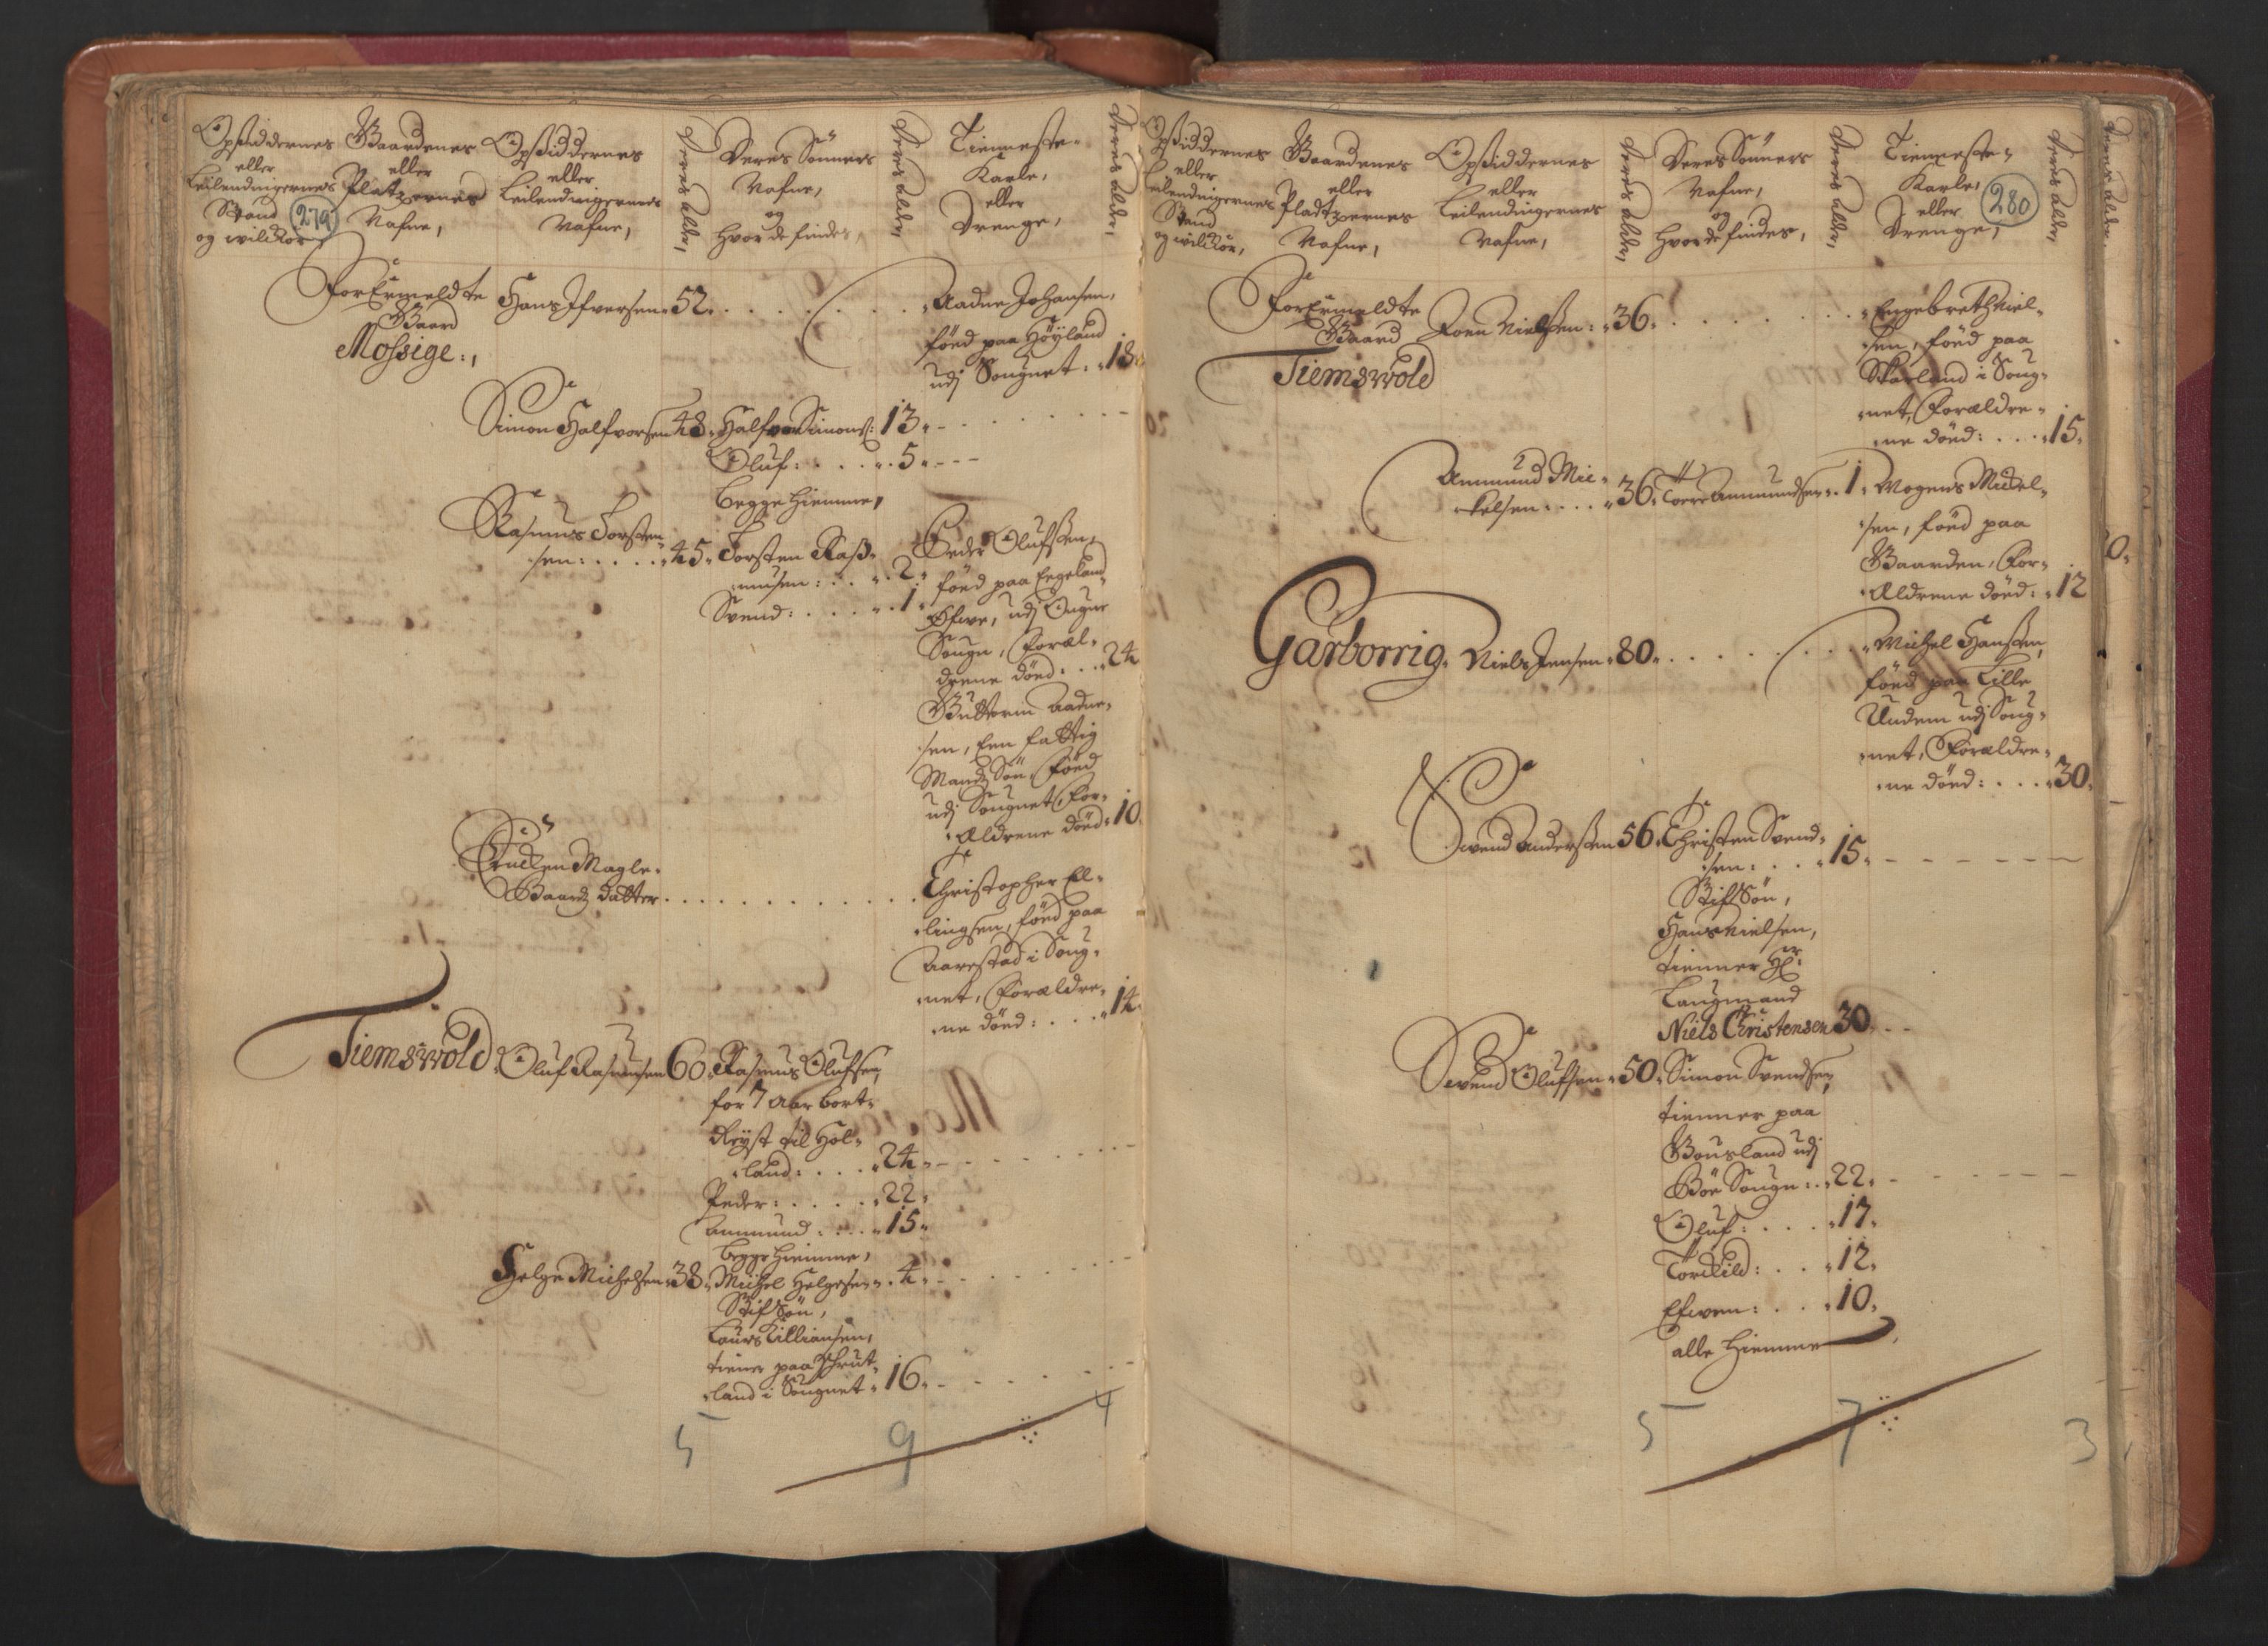 Opsiddernes
eller
Leilendingernes
Stand
og wilckor,
279
Gaardenes
eller
Platzernes
Nafne,
Opsiddernes
eller
Leilendingernes
Nafne,
Deres alder,
Deres Sönners
Nafne,
og
hvor de findes,
Deres alder,
Tienneste-
Karle,
eller
Drenge,
Deres alder,
Forermeldte
Gaard
Mossige.,
Hans Ifversen 52
Aadne Johansen,
föed paa Höyland
udj Sougnet. 18
Simon Halfvorsen 48
Halfvor Simons: 13
Oluf: 5
begge hiemme,
Rasmus Torsten-
sen: 45
Torsten Rass-
musen: 2
Svend: 1
Peder Olufsen,
föed paa Eegeland
Öfwe, udj Ougne
Sougn, Foræl-
drene döed. 24
Guttorm Aadne-
sen, Een fattig
Mands Sön, föed
udj Sougnet For-
Ældrene döed. 10
Magle-
Gaards datter
Christopher El-
lingsen, föed paa
Aarestad i Soug-
net, Forældre-
ne döed: 14
Tiemswold
Oluf Rasmusen 60
Rasmus Olufsen,
for 7 Aar bort-
Reÿst til Hol-
land: 24
Peder: 22
Ammund: 15
begge hiemme,
Helge Michelsen 38
Michel Helgesen 4
Stifsön,
Laurs Tillriansen,
tiener paa Schrut-
land i Sougnet 16
5
9
4
Opsiddernes
eller
Leilendingernes
Stand
og wilckor,
Gaardenes
eller
Pladtzernes
Nafne,
Opsiddernes
eller
Leilendingernes
Nafne,
Deres alder,
Deres Sönners
Nafne,
og
hvor de findes,
Deres alder,
Tienneste-
Karle,
eller
Drenge,
280
Deres alder,
Deres alder
Forermeldte
Gaard
Tiemswold
Joen Nielssen: 36
Engebreth Niel-
sen, föed paa
Skarland i Soug-
net, Forældre-
ne döed: 15
Ammund Mic-
kelsen 36
Torre Ammundsen 1
Mogens Mickel-
sen, föed paa
Gaarden, For-
Ældrene döed: 12
Garborrig. Niels Jensen 80
Michel Hanssen,
föed paa Lille
Undem udj Soug-
net, Forældre-
ne döed: 30
Swend Anderssen 56
Christen Svend-
sen: 15
StifSön,
Hans Nielsen,
tienner Hr:
Laugmand
Niels Christensen 30
Swend Olufsen 50
Simon Svendsen,
tienner paa
Bousland udj
Böe Sougn: 22
Oluf: 17
Torckild: 12
Efwen: 10
alle hiemme
5
7
3